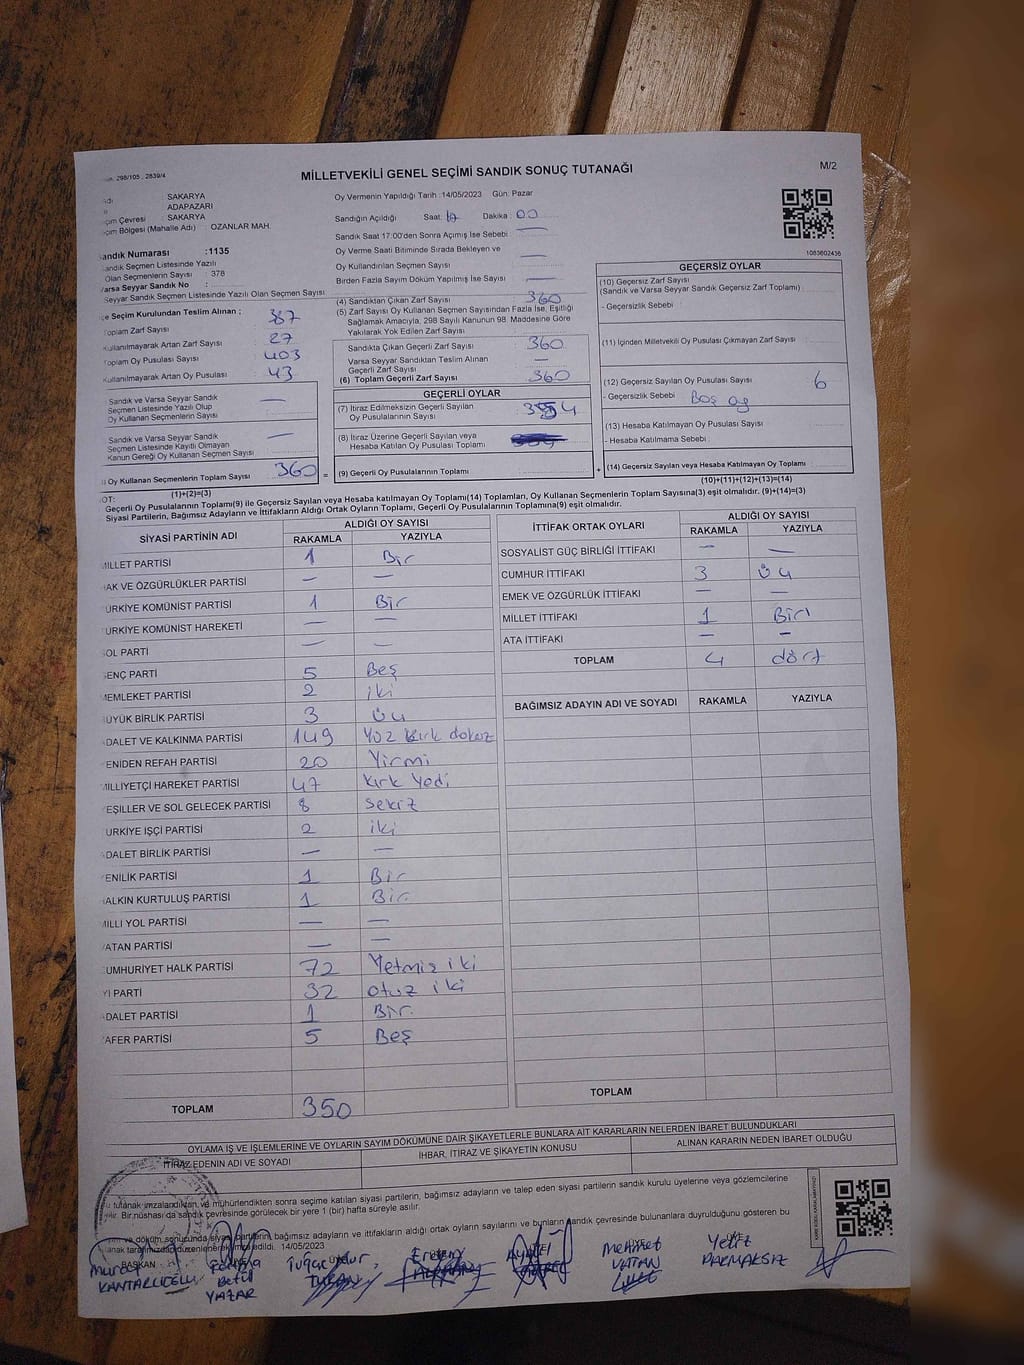 298/105 , 2839/4
MİLLETVEKİLİ GENEL SEÇİMİ SANDIK SONUÇ TUTANAĞI
M/2
SAKARYA
ADAPAZARI
Çevresi : SAKARYA
Bölgesi (Mahalle Adı) OZANLAR MAH.
andık Numarası :1135
andık Seçmen Listesinde Yazılı
Olan Seçmenlerin Sayısı : 378
Varsa Seyyar Sandık No :
Seyyar Sandık Seçmen Listesinde Yazılı Olan Seçmen Sayısı
Seçim Kurulundan Teslim Alınan ; 387
oplam Zarf Sayısı
Kullanılmayarak Artan Zarf Sayısı 27
oplam Oy Pusulası Sayısı 403
Kullanılmayarak Artan Oy Pusulası 43
Sandık ve Varsa Seyyar Sandık —
Seçmen Listesinde Yazılı Olup
Oy Kullanan Seçmenlerin Sayısı
Sandık ve Varsa Seyyar Sandık —
Seçmen Listesinde Kayıtlı Olmayan
Kanun Gereği Oy Kullanan Seçmen Sayısı
Oy Kullanan Seçmenlerin Toplam Sayısı 360 =
(1)+(2)=(3)
Oy Vermenin Yapıldığı Tarih :14/05/2023 Gün: Pazar
Sandığın Açıldığı Saat: Dakika : 00
Sandık Saat 17:00'den Sonra Açımış İse Sebebi —
Oy Verme Saati Bitiminde Sırada Bekleyen ve
Oy Kullandırılan Seçmen Sayısı —
Birden Fazla Sayım Döküm Yapılmış İse Sayısı —
(4) Sandıktan Çıkan Zarf Sayısı 360
(5) Zarf Sayısı Oy Kullanan Seçmen Sayısından Fazla İse, Eşitliği
Sağlamak Amacıyla, 298 Sayılı Kanunun 98. Maddesine Göre
Yakılarak Yok Edilen Zarf Sayısı
Sandıkta Çıkan Geçerli Zarf Sayısı 360
Varsa Seyyar Sandıktan Teslim Alınan —
Geçerli Zarf Sayısı
(6) Toplam Geçerli Zarf Sayısı 360
GEÇERLİ OYLAR
(7) İtiraz Edilmeksizin Geçerli Sayılan
Oy Pusulalarının Sayısı
(8) İtiraz Üzerine Geçerli Sayılan veya
Hesaba Katılan Oy Pusulası Toplamı
(9) Geçerli Oy Pusulalarının Toplamı +
1083602436
GEÇERSİZ OYLAR
(10) Geçersiz Zarf Sayısı
(Sandık ve Varsa Seyyar Sandık Geçersiz Zarf Toplamı)
- Geçersizlik Sebebi
(11) İçinden Milletvekili Oy Pusulası Çıkmayan Zarf Sayısı
(12) Geçersiz Sayılan Oy Pusulası Sayısı 6
- Geçersizlik Sebebi Boş oy
(13) Hesaba Katılmayan Oy Pusulası Sayısı
- Hesaba Katılmama Sebebi :
(14) Geçersiz Sayılan veya Hesaba Katılmayan Oy Toplamı
(10)+(11)+(12)+(13)=(14)
OT:
Geçerli Oy Pusulaları Toplamı(9) ile Geçersiz Sayılan veya Hesaba katılmayan Oy Toplamı(14) Toplamları, Oy Kullanan Seçmenlerin Toplam Sayısına(3) eşit olmalıdır. (9)+(14)=(3)
Siyasi Partilerin, Bağımsız Adayların ve İttifakların Aldığı Ortak Oyların Toplamı, Geçerli Oy Pusulalarının Toplamına(9) eşit olmalıdır.
SİYASİ PARTİNİN ADI
ALDIĞI OY SAYISI
RAKAMLA YAZIYLA
MİLLET PARTİSİ 1 Bir
AK VE ÖZGÜRLÜKLER PARTİSİ — —
ÜRKİYE KOMÜNİST PARTİSİ 1 Bir
ÜRKİYE KOMÜNİST HAREKETİ — —
OL PARTİ — —
ENÇ PARTİ 5 Beş
MEMLEKET PARTİSİ 2 iki
ÜYÜK BİRLİK PARTİSİ 3 Üç
DALET VE KALKINMA PARTİSİ 149 Yüz kırk dokuz
ENİDEN REFAH PARTİSİ 20 Yirmi
MİLLİYETÇİ HAREKET PARTİSİ 47 kırk Yedi
EŞİLLER VE SOL GELECEK PARTİSİ 8 sekiz
ÜRKİYE İŞÇİ PARTİSİ 2 iki
DALET BİRLİK PARTİSİ — —
ENİLİK PARTİSİ 1 Bir
ALKIN KURTULUŞ PARTİSİ 1 Bir
MİLLİ YOL PARTİSİ — —
ATAN PARTİSİ — —
UMHURİYET HALK PARTİSİ 72 Yetmiş iki
Yİ PARTİ 32 otuz iki
DALET PARTİSİ 1 Bir
AFER PARTİSİ 5 Beş
TOPLAM 350
İTTİFAK ORTAK OYLARI
ALDIĞI OY SAYISI
RAKAMLA YAZIYLA
SOSYALİST GÜÇ BİRLİĞİ İTTİFAKI — —
CUMHUR İTTİFAKI 3 Üç
EMEK VE ÖZGÜRLÜK İTTİFAKI — —
MİLLET İTTİFAKI 1 Bir
ATA İTTİFAKI — —
TOPLAM 4 dört
BAĞIMSIZ ADAYIN ADI VE SOYADI RAKAMLA YAZIYLA
TOPLAM
OYLAMA İŞ VE İŞLEMLERİNE VE OYLARIN SAYIM DÖKÜMÜNE DAİR ŞİKAYETLERLE BUNLARA AİT KARARLARIN NELERDEN İBARET BULUNDUKLARI
İTİRAZ EDENİN ADI VE SOYADI
İHBAR, İTİRAZ VE ŞİKAYETİN KONUSU
ALINAN KARARIN NEDEN İBARET OLDUĞU
tutanak imzalandıktan ve mühürlendikten sonra seçime katılan siyasi partilerin, bağımsız adayların ve talep eden siyasi partilerin sandık kurulu üyelerine veya gözlemcilerine
Bir nüshası da sandık çevresinde görülecek bir yere 1 (bir) hafta süreyle asılır.
ve döküm sonucunda siyasi partilerin, bağımsız adayların ve ittifakların aldığı ortak oyların sayılarını ve bunların sandık çevresinde bulunanlara duyrulduğunu gösteren bu
anak tarafımızdan düzenlenerek imza edildi. 14/05/2023
BAŞKAN
KANTARCIOĞLU
Betül
YAZAR
Tuğçe
TURAN
Mehmet
VATAN
Yeliz
PARMAKSIZ